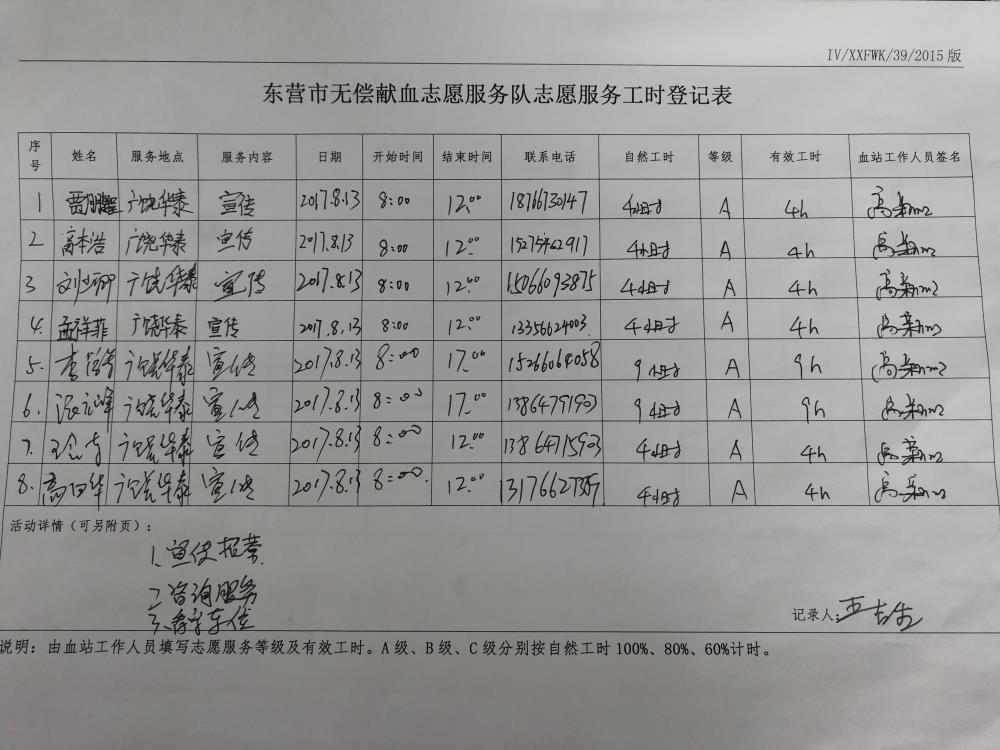 IV/XXFWK/39/2015版
东营市无偿献血志愿服务队志愿服务工时登记表
序号 姓名 服务地点 服务内容 日期 开始时间 结束时间 联系电话 自然工时 等级 有效工时 血站工作人员签名
1 广饶华泰 宣传 2017.8.13 8:00 12:00 18766730147 4小时 A 4h
2 高本浩 广饶华泰 宣传 2017.8.13 8:00 12:00 15275462917 4小时 A 4h
3 广饶华泰 宣传 2017.8.13 8:00 12:00 15066093875 4小时 A 4h
4. 孟祥菲 广饶华泰 宣传 2017.8.13 8:00 12:00 13356624003 4小时 A 4h
5. 广饶华泰 宣传 2017.8.13 8:00 17:00 15266064058 9小时 A 9h
6. 广饶华泰 宣传 2017.8.13 8:00 17:00 13864791903 9小时 A 9h
7. 广饶华泰 宣传 2017.8.13 8:00 12:00 13864715903 4小时 A 4h
8. 广饶华泰 宣传 2017.8.13 8:00 12:00 4小时 A 4h
活动详情（可另附页）：
1、宣传招募
2、咨询服务
记录人：
说明：由血站工作人员填写志愿服务等级及有效工时。A级、B级、C级分别按自然工时100%、80%、60%计时。